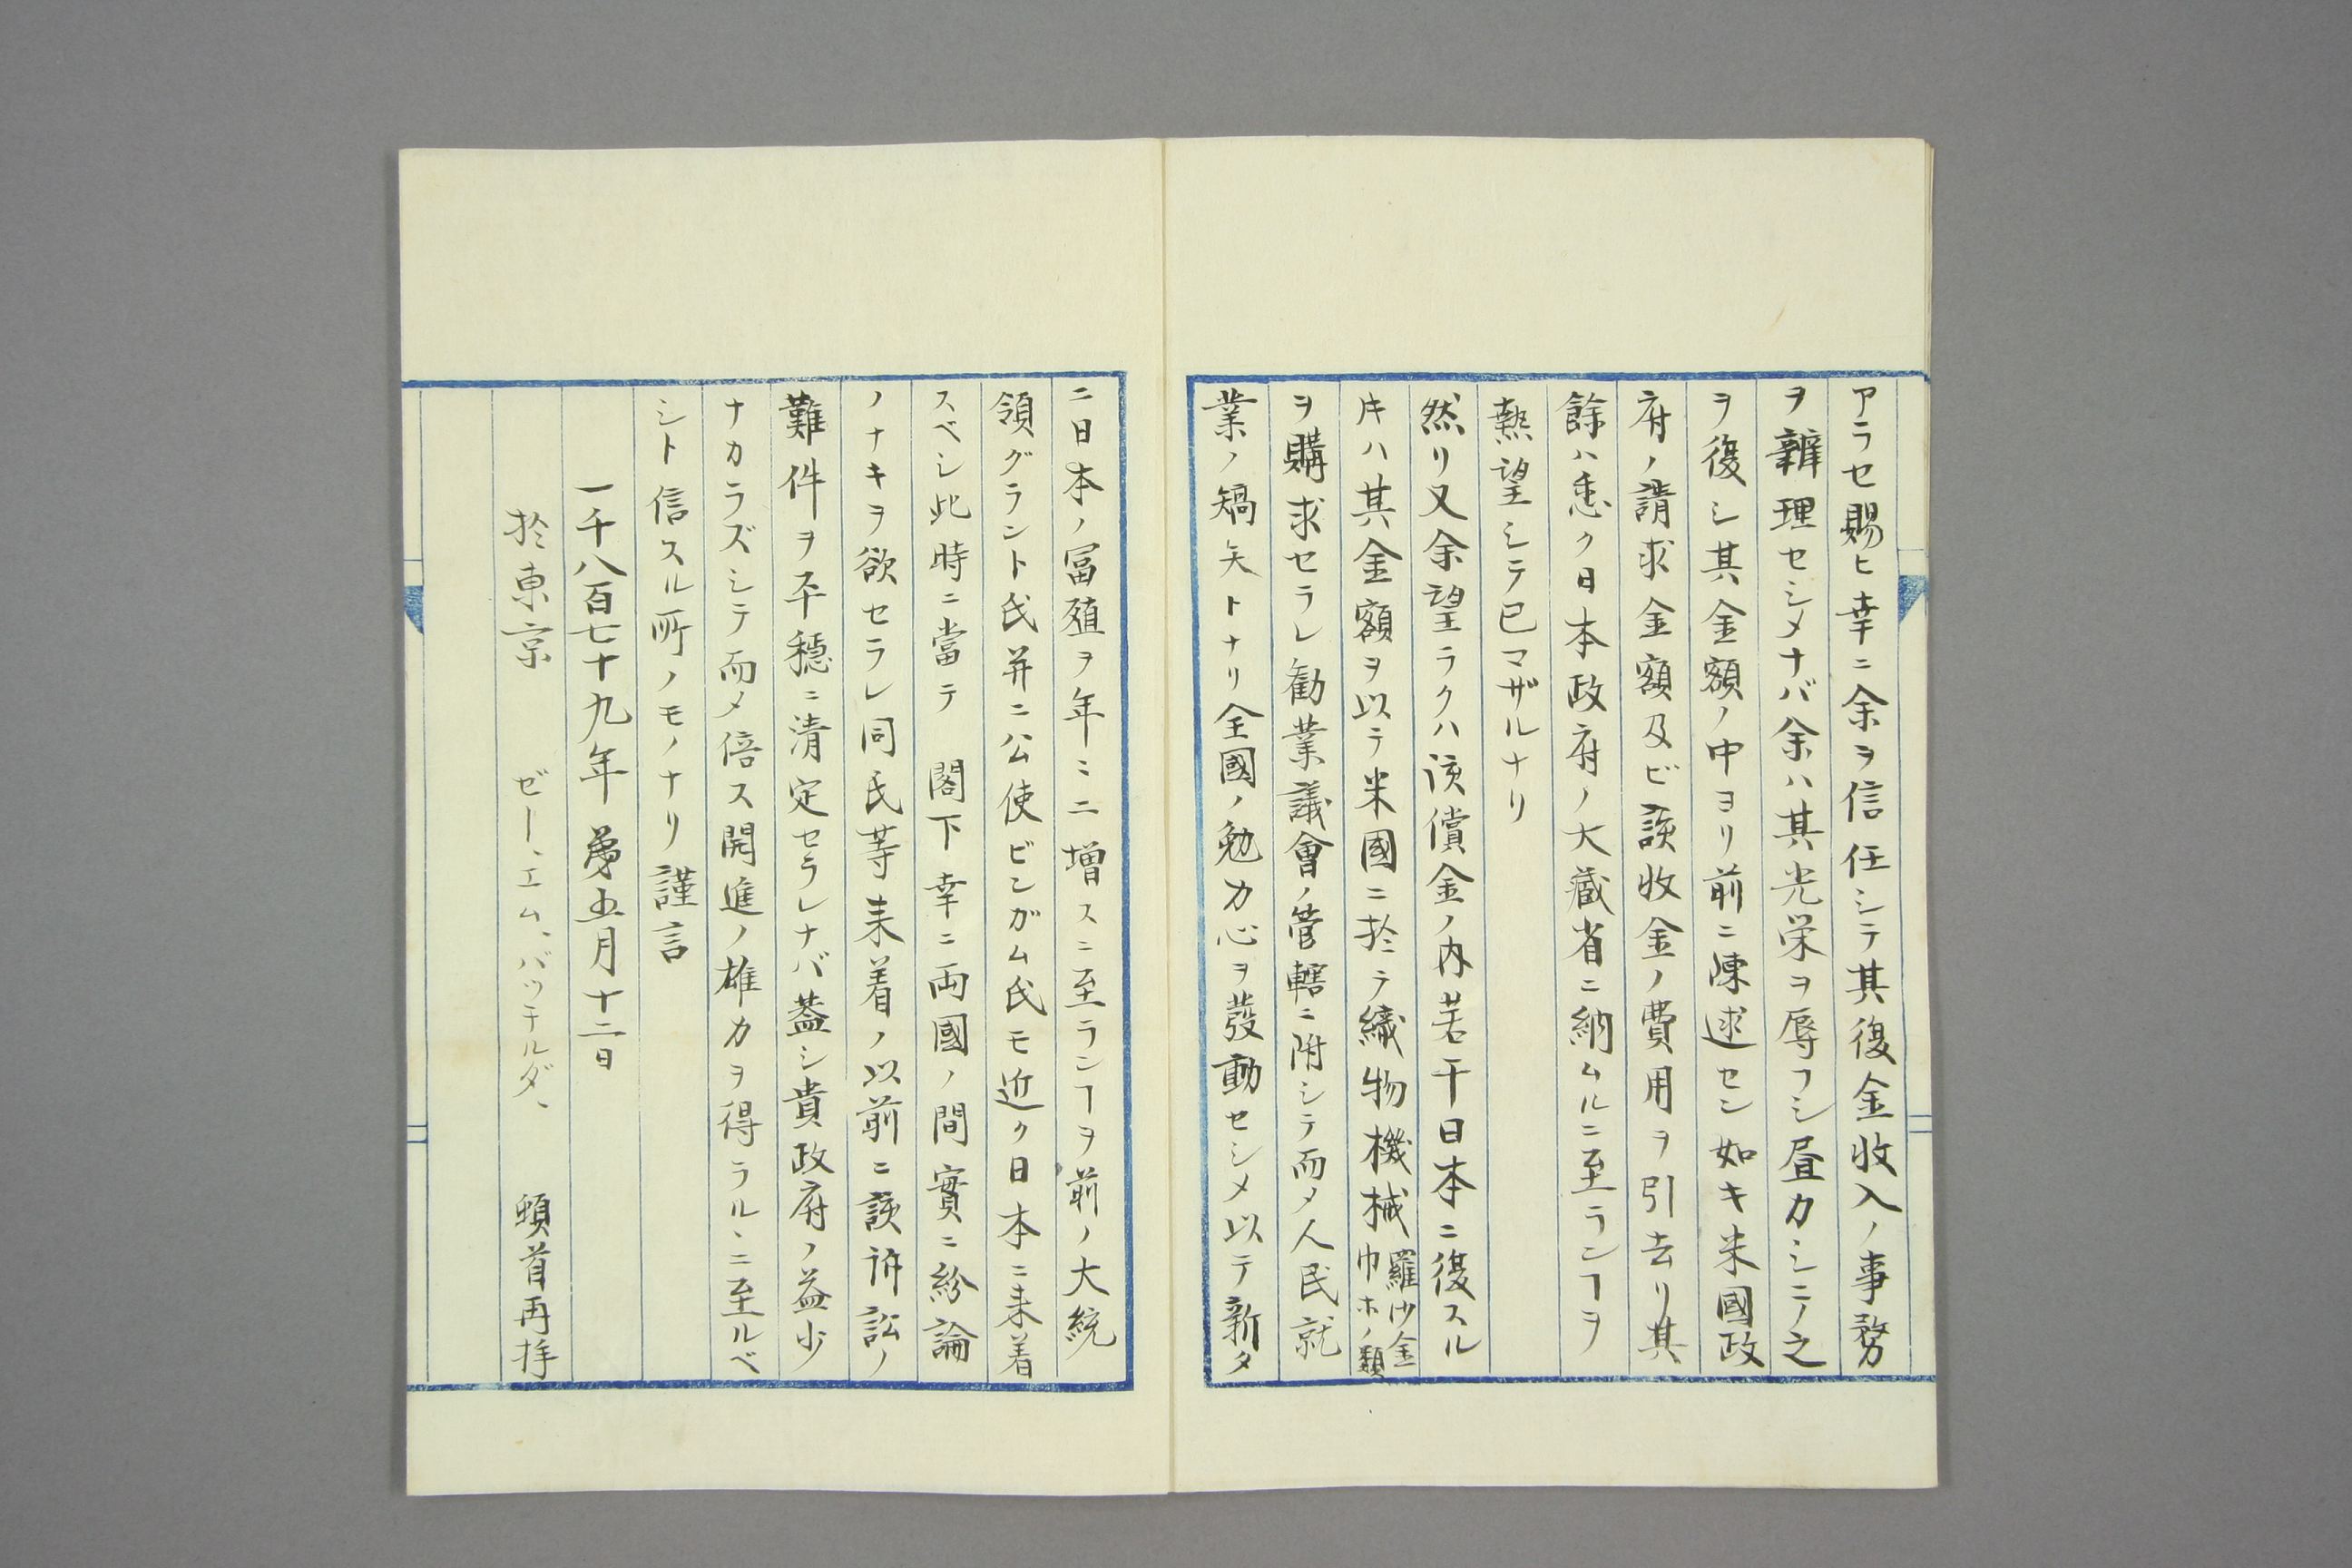 アラセ賜ヒ幸ニ余ヲ信任シテ其復金收入ノ事務
ヲ辦理セシメナバ余ハ其光栄ヲ辱フシ昼カシニノ之
ヲ復シ其金額ノ中ヨリ前ニ陳述セシ如キ米國政
府ノ請求金額及ビ該收金ノ費用ヲ引去リ其
餘ハ悉ク日本政府ノ大藏省ニ納ムルニ至ランヿヲ
熱望シテ已マザルナリ
然リ又余望ラクハ該償金ノ内若干日本ニ復スル
キハ其金額ヲ以テ米國ニ於テ織物機械羅沙金巾ホノ類
ヲ購求セラレ勧業議會ノ管轄ニ附シテ而メ人民就
業ノ矯矢トナリ全國ノ勉力心ヲ發動セシメ以テ新タ
ニ日本ノ冨殖ヲ年ニニ増スニ至ランヿヲ前ノ大統
領グラント氏并ニ公使ビンガム氏モ近ク日本ニ来着
スベシ此時ニ當テ 閣下幸ニ両國ノ間實ニ紛論
ノナキヲ欲セラレ同氏等来着ノ以前ニ該訴訟ノ
難件ヲ平穏ニ清定セラレナバ蓋シ貴政府ノ益少
ナカラズシテ而メ倍ス開進ノ雄力ヲ得ラルヽニ至ルベ
シト信スル所ノモノナリ謹言
一千八百七十九年第五月十二日
於東京 ゼー、エム、バッチルダ、 頓首再拝